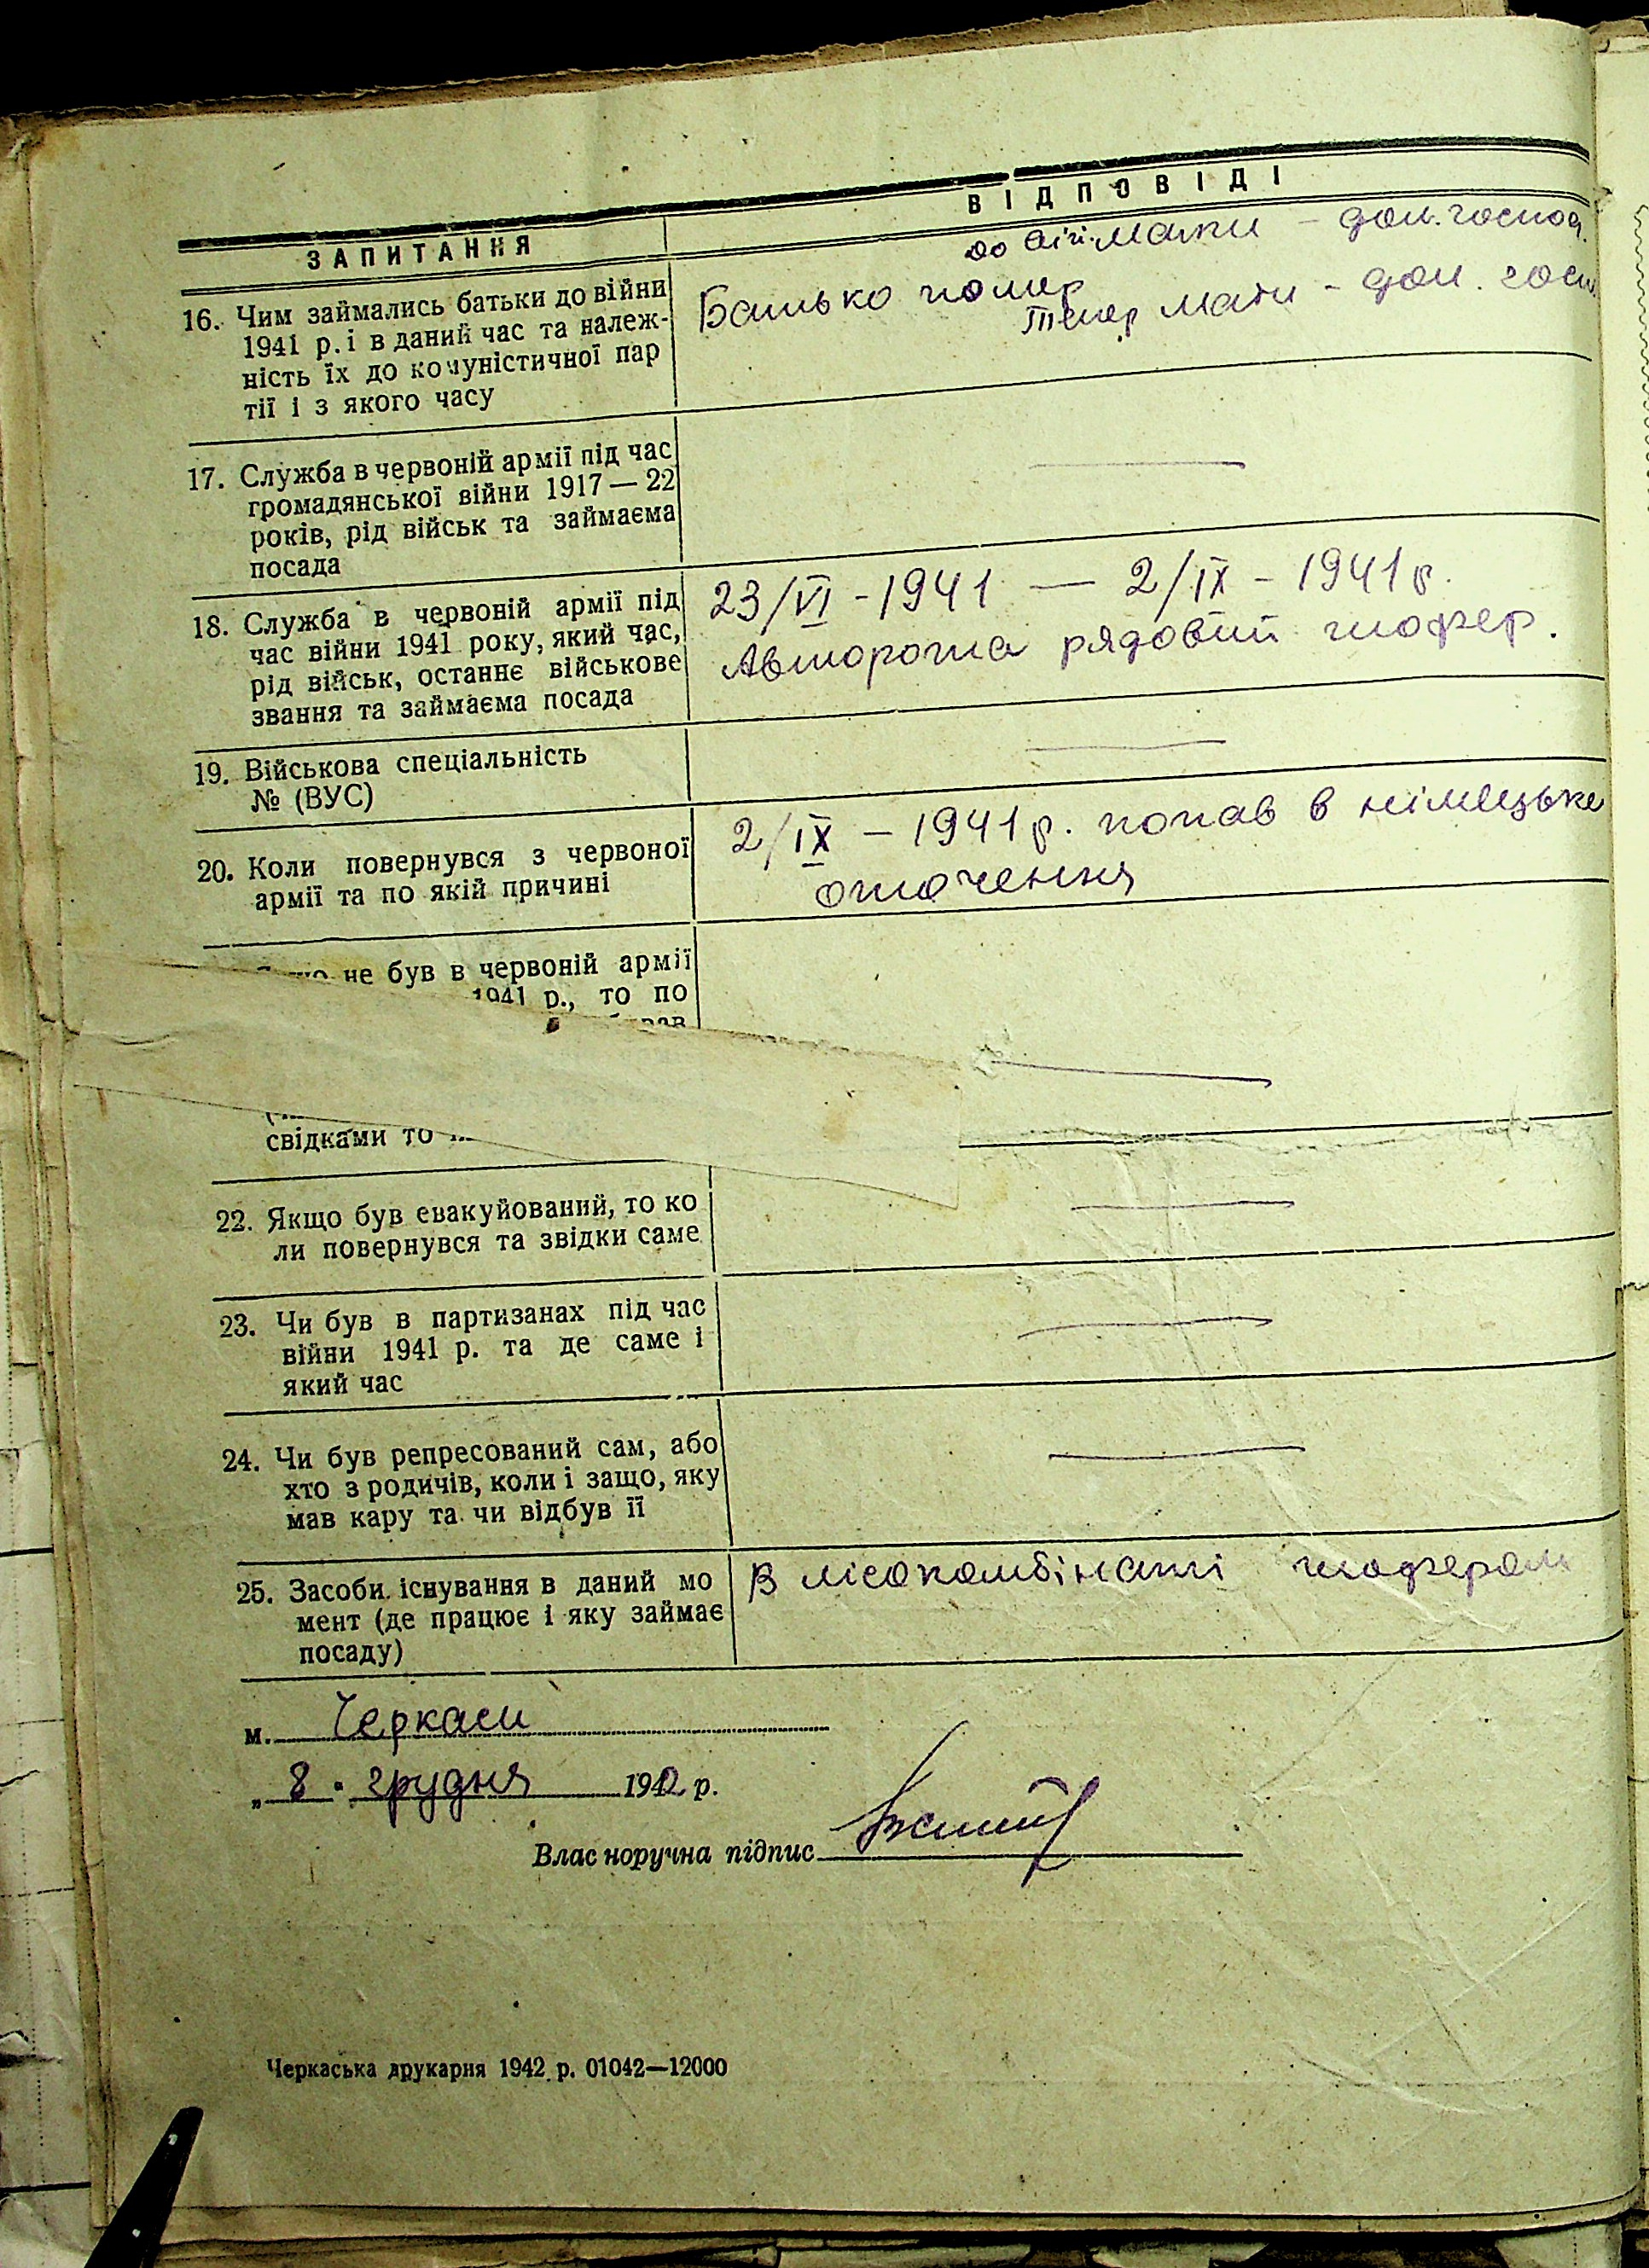 ЗАПИТАННЯ
ВІДПОВІДІ
16. Чим займались батьки до війни
1941 р. і в даний час та належ-
ність їх до комуністичної пар
тії і з якого часу
до війни мати – дом. господ.
Батько помер
Тепер мати – дом. госп.
17. Служба в червоній армії під час
громадянської війни 1917 — 22
років, рід військ та займаєма
посада
18. Служба в червоній армії під
час війни 1941 року, який час,
рід військ, останнє військове
звання та займаєма посада
23/VI - 1941 — 2/IX - 1941 р.
Авторота рядовий шофер.
19. Військова спеціальність
№ (ВУС)
20. Коли повернувся з червоної
армії та по якій причині
2/IX – 1941 р. попав в німецьке
оточення
не був в червоній армії
1941 р., то по
свідками то
22. Якщо був евакуйований, то ко
ли повернувся та звідки саме
23. Чи був в партизанах під час
війни 1941 р. та де саме і
який час
24. Чи був репресований сам, або
хто з родичів, коли і защо, яку
мав кару та чи відбув її
25. Засоби існування в даний мо
мент (де працює і яку займає
посаду)
В лісокомбінаті шофером
м. Черкаси
„8" грудня 1942 р.
Влас норучна підпис
Черкаська друкарня 1942 р. 01042—12000